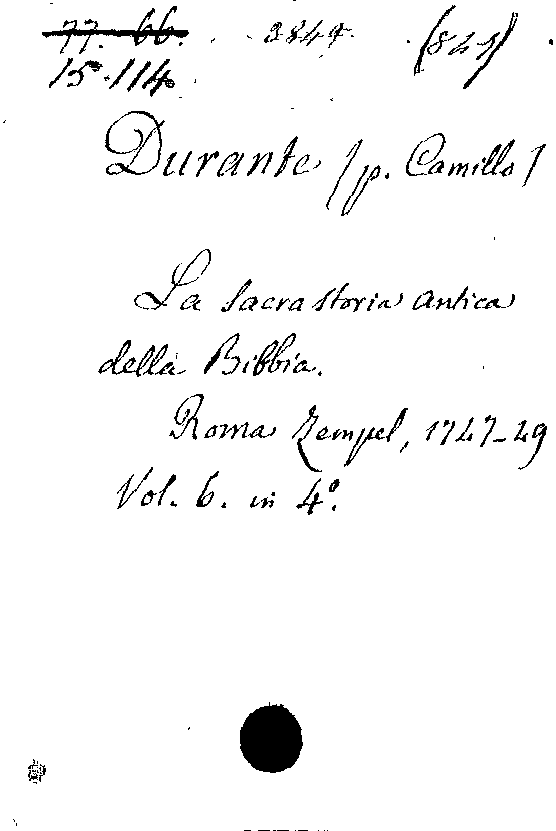 77. 66. 3849. (821)
15.114
Durante (p. Camillo)
La sacra storia antica
della Bibbia.
Roma Zempel, 1747-49
Vol. 6. in 4º.